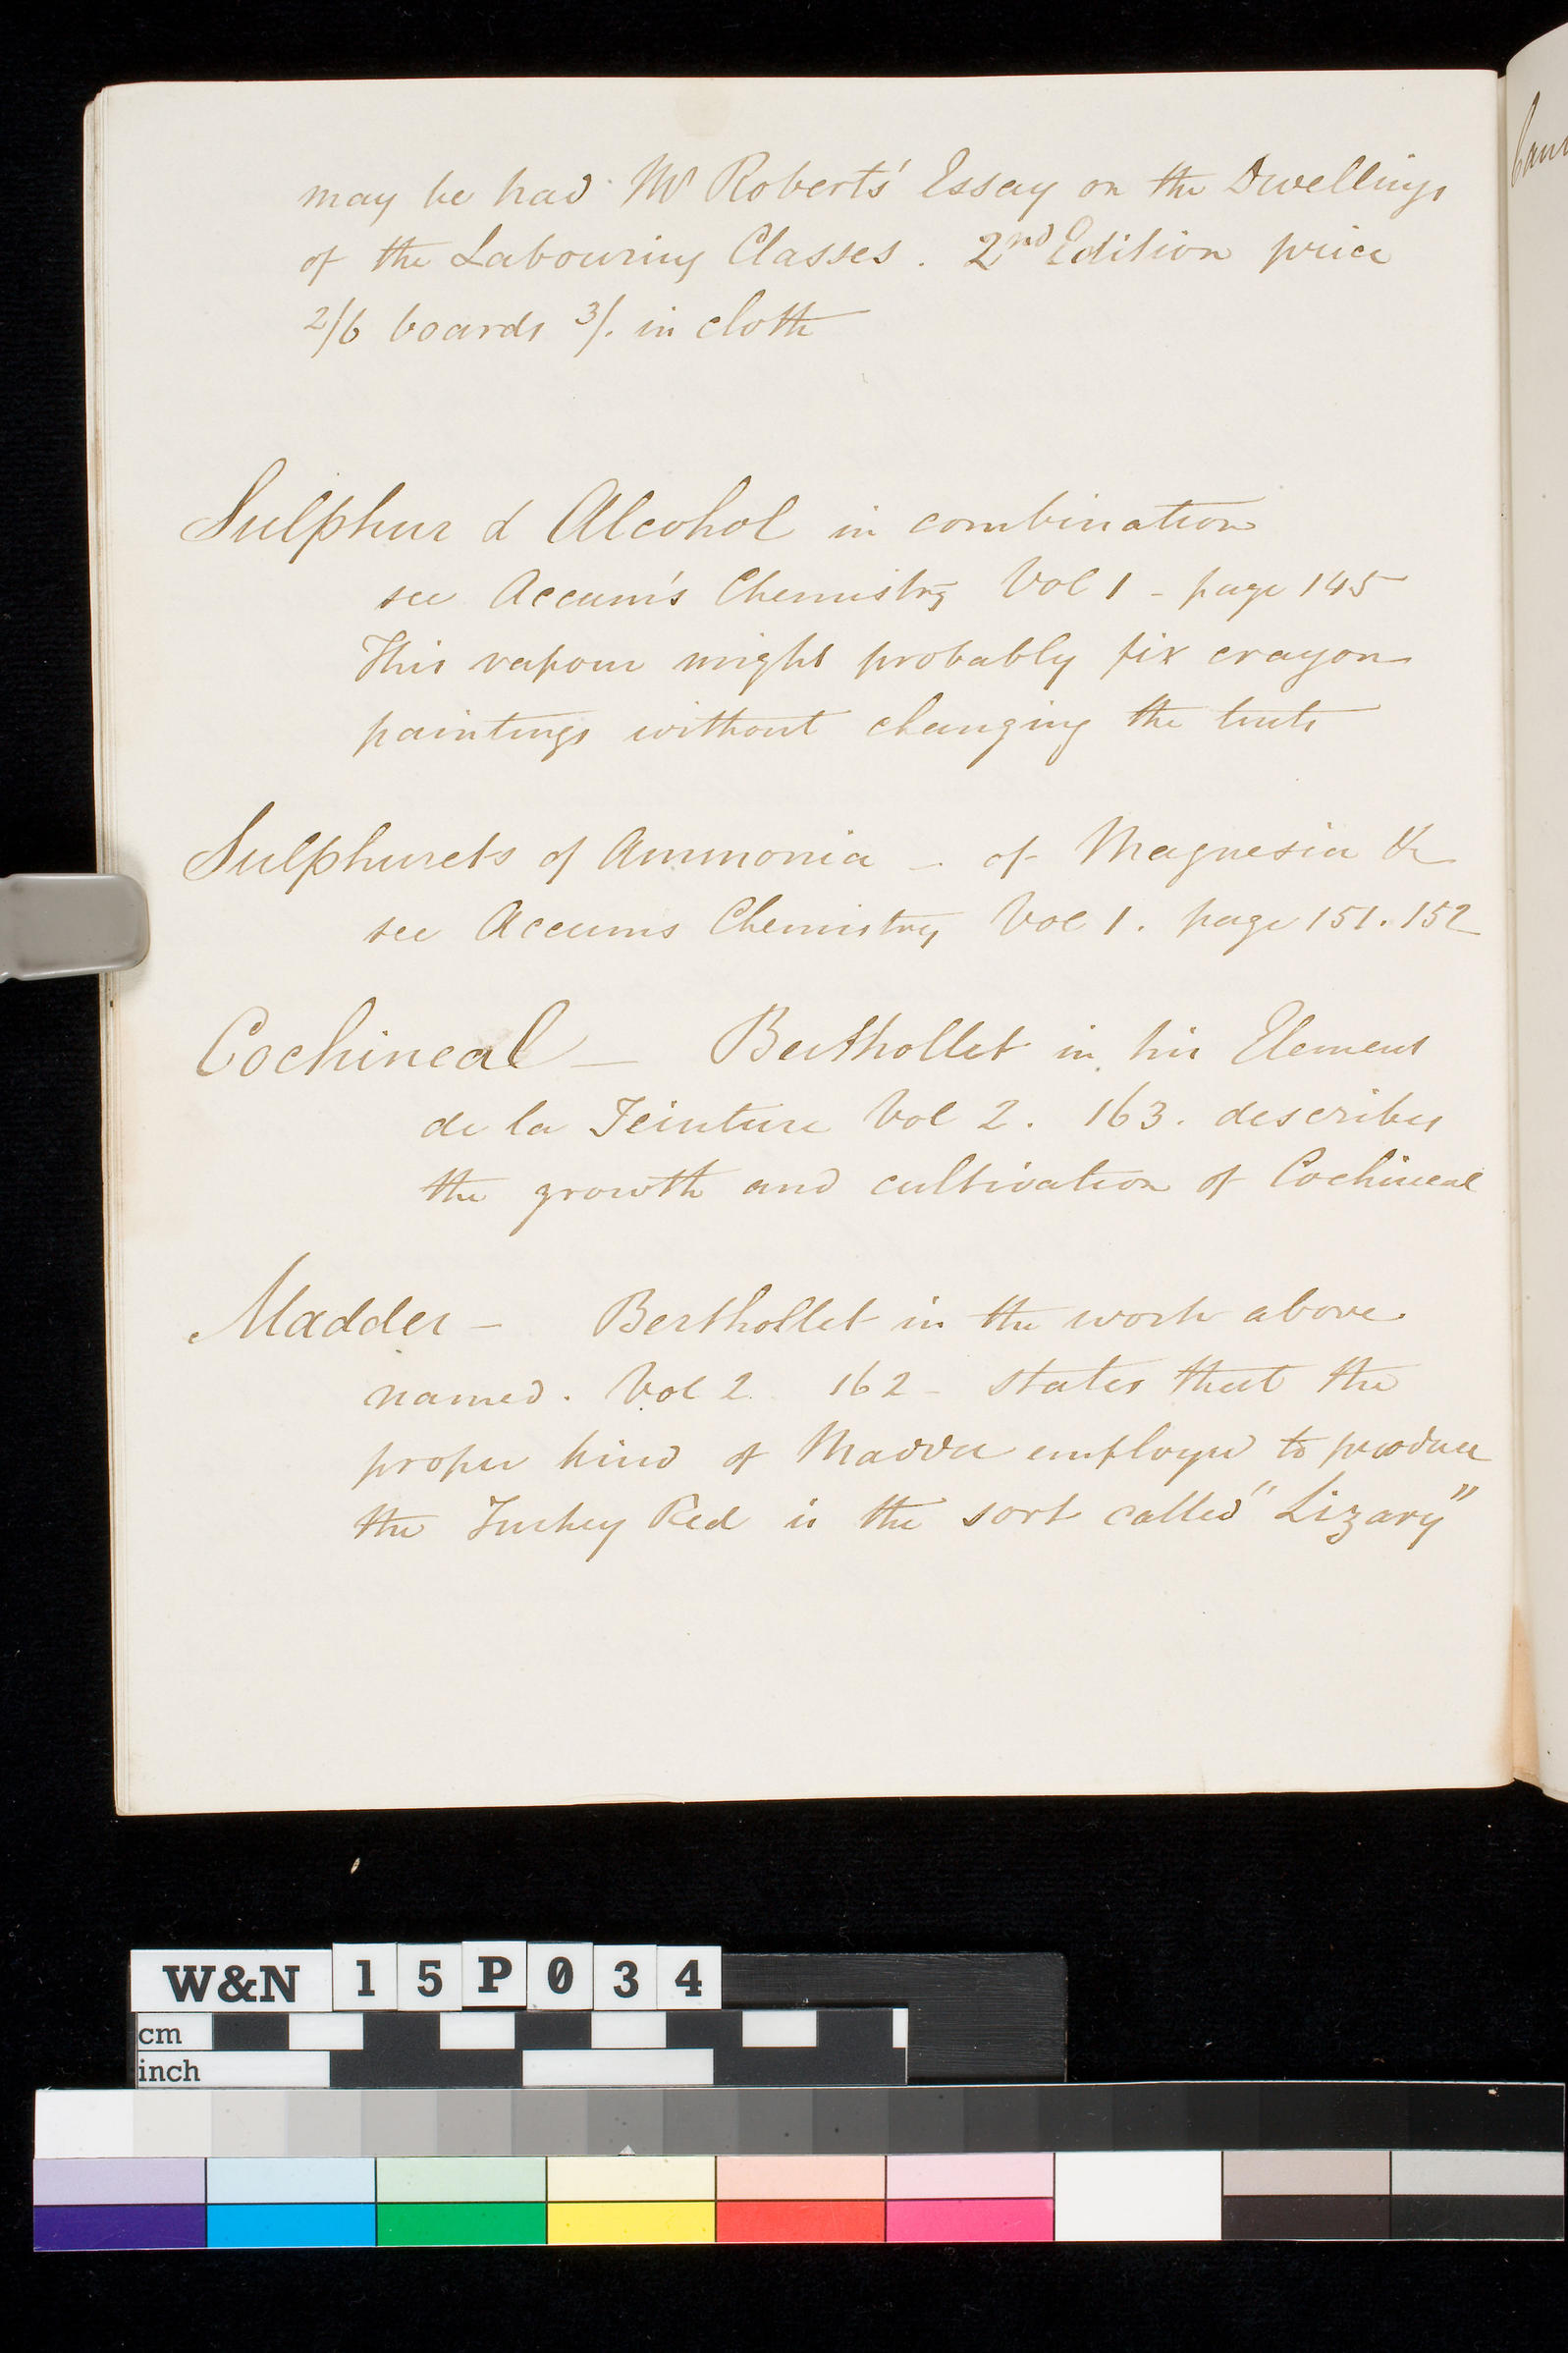 may be had Mr Roberts' Essay on the Dwellings
of the Labouring Classes. 2nd Edition price
2/6 boards 3/. in cloth
Sulphur & Alcohol in combination
see Accum's Chemistry Vol 1 - page 145
This vapour might probably fix crayon
paintings without changing the tints
Sulphurets of Ammonia - of Magnesia &c
see Accums Chemistry Vol 1. page 151. 152
Cochineal - Berthollet in his Element
de la Teinture Vol 2. 163. describes
the growth and cultivation of Cochineal
Madder - Berthollet in the work above
named. Vol 2 162 - states that the
proper kind of Madder employed to produce
the Turkey Red is the sort called "Lizary"
W&N 15P034
cm
inch